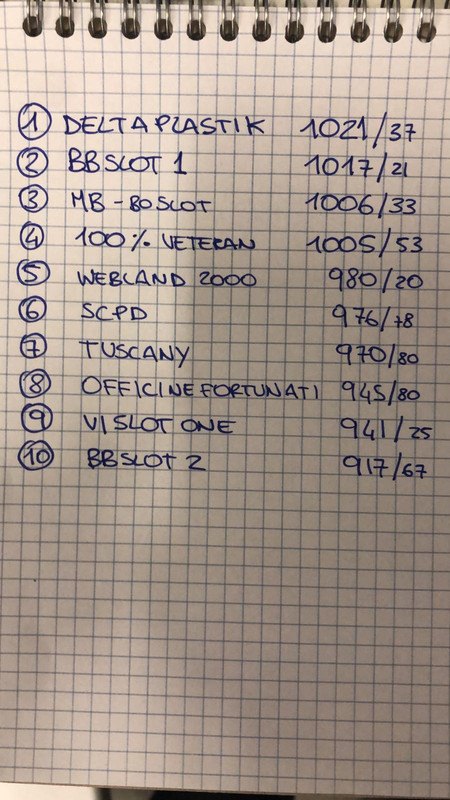 1 DELTAPLASTIK 1021/37
2 BBSLOT 1 1017/21
3 MB-BOSLOT 1006/33
4 100% VETERAN 1005/53
5 WEBLAND 2000 980/20
6 SCPD 976/78
7 TUSCANY 970/80
8 OFFICINEFORTUNATI 945/80
9 VISLOT ONE 941/25
10 BBSLOT 2 917/67